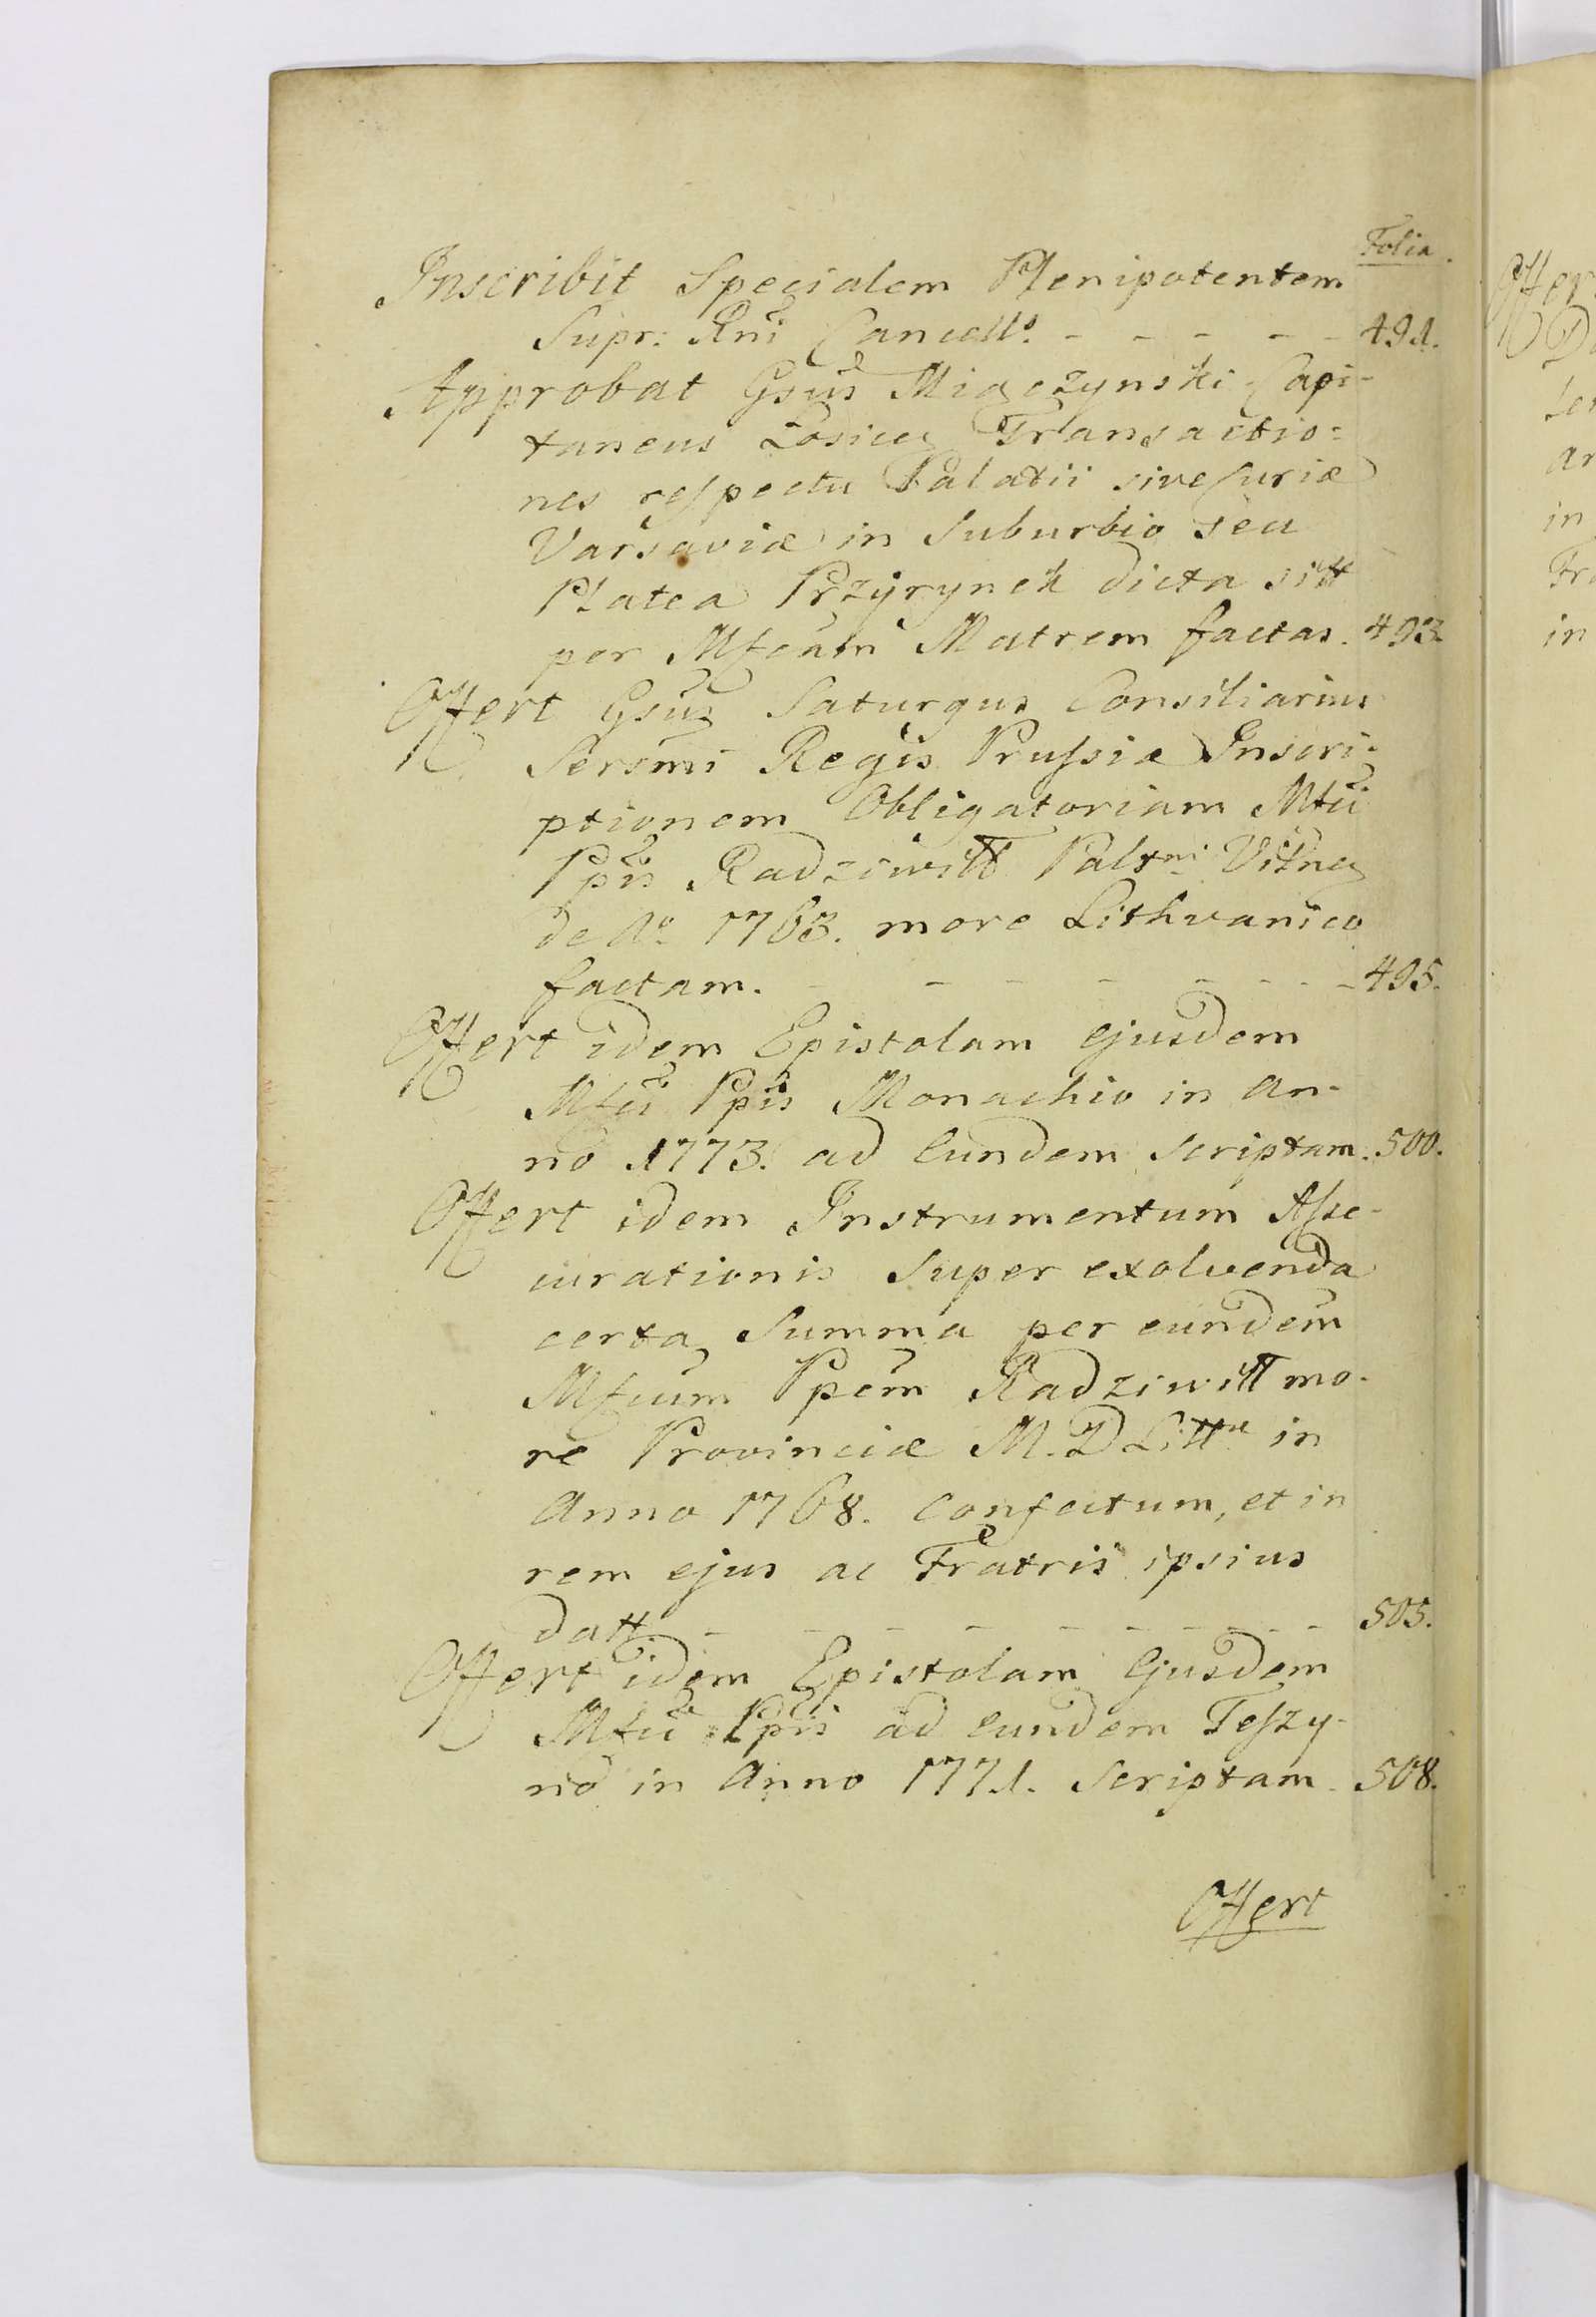 Folia.
Inscribit Specialem Plenipotentem
Supr: Rni Cancells. - - - - - 491.
Approbat Gsus Miączynski Capi-
taneus Łosiceȝ Transactio=
nes respectu Palatii sive Curiæ
Varsaviæ in Suburbio seu
Platea Przyrynek dicta sitt
per Mfcam Matrem factas. 493
Offert Gsus Saturgus Consiliarius
Sersmi Regis Prussiæ Inscri-
ptionem Obligatoriam Mfci
Ppis Radziwiłł Paltni Vilneȝ
de Ao 1763. more Lithvanico
factam. - - - - - - 495.
Offert idem Epistolam ejusdem
Mfci Ppis Monachio in An-
no 1773. ad Eundem scriptam. 500.
Offert idem Instrumentum Asse-
curationis super exolvenda
certa Summa per eundem
Mfcum Ppem Radziwiłł mo-
re Provinciæ M. D Littæ in
Anno 1768. confectum, et in
rem ejus ac Fratris ipsius
datt. - - - - - - - - 505.
Offert idem Epistolam Ejusdem
Mfci Ppis ad Eundem Teszy-
no in Anno 1771. Scriptam. 508.
Offert
Offer
in
in